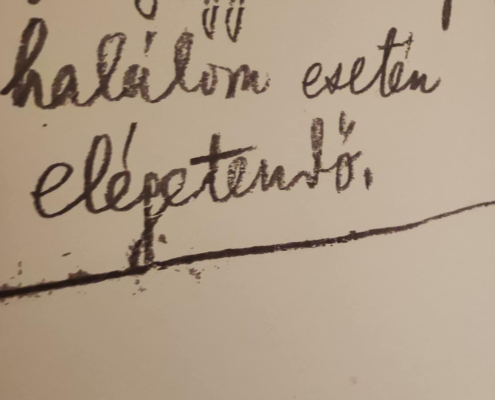 halálom esetén
elégetendő.